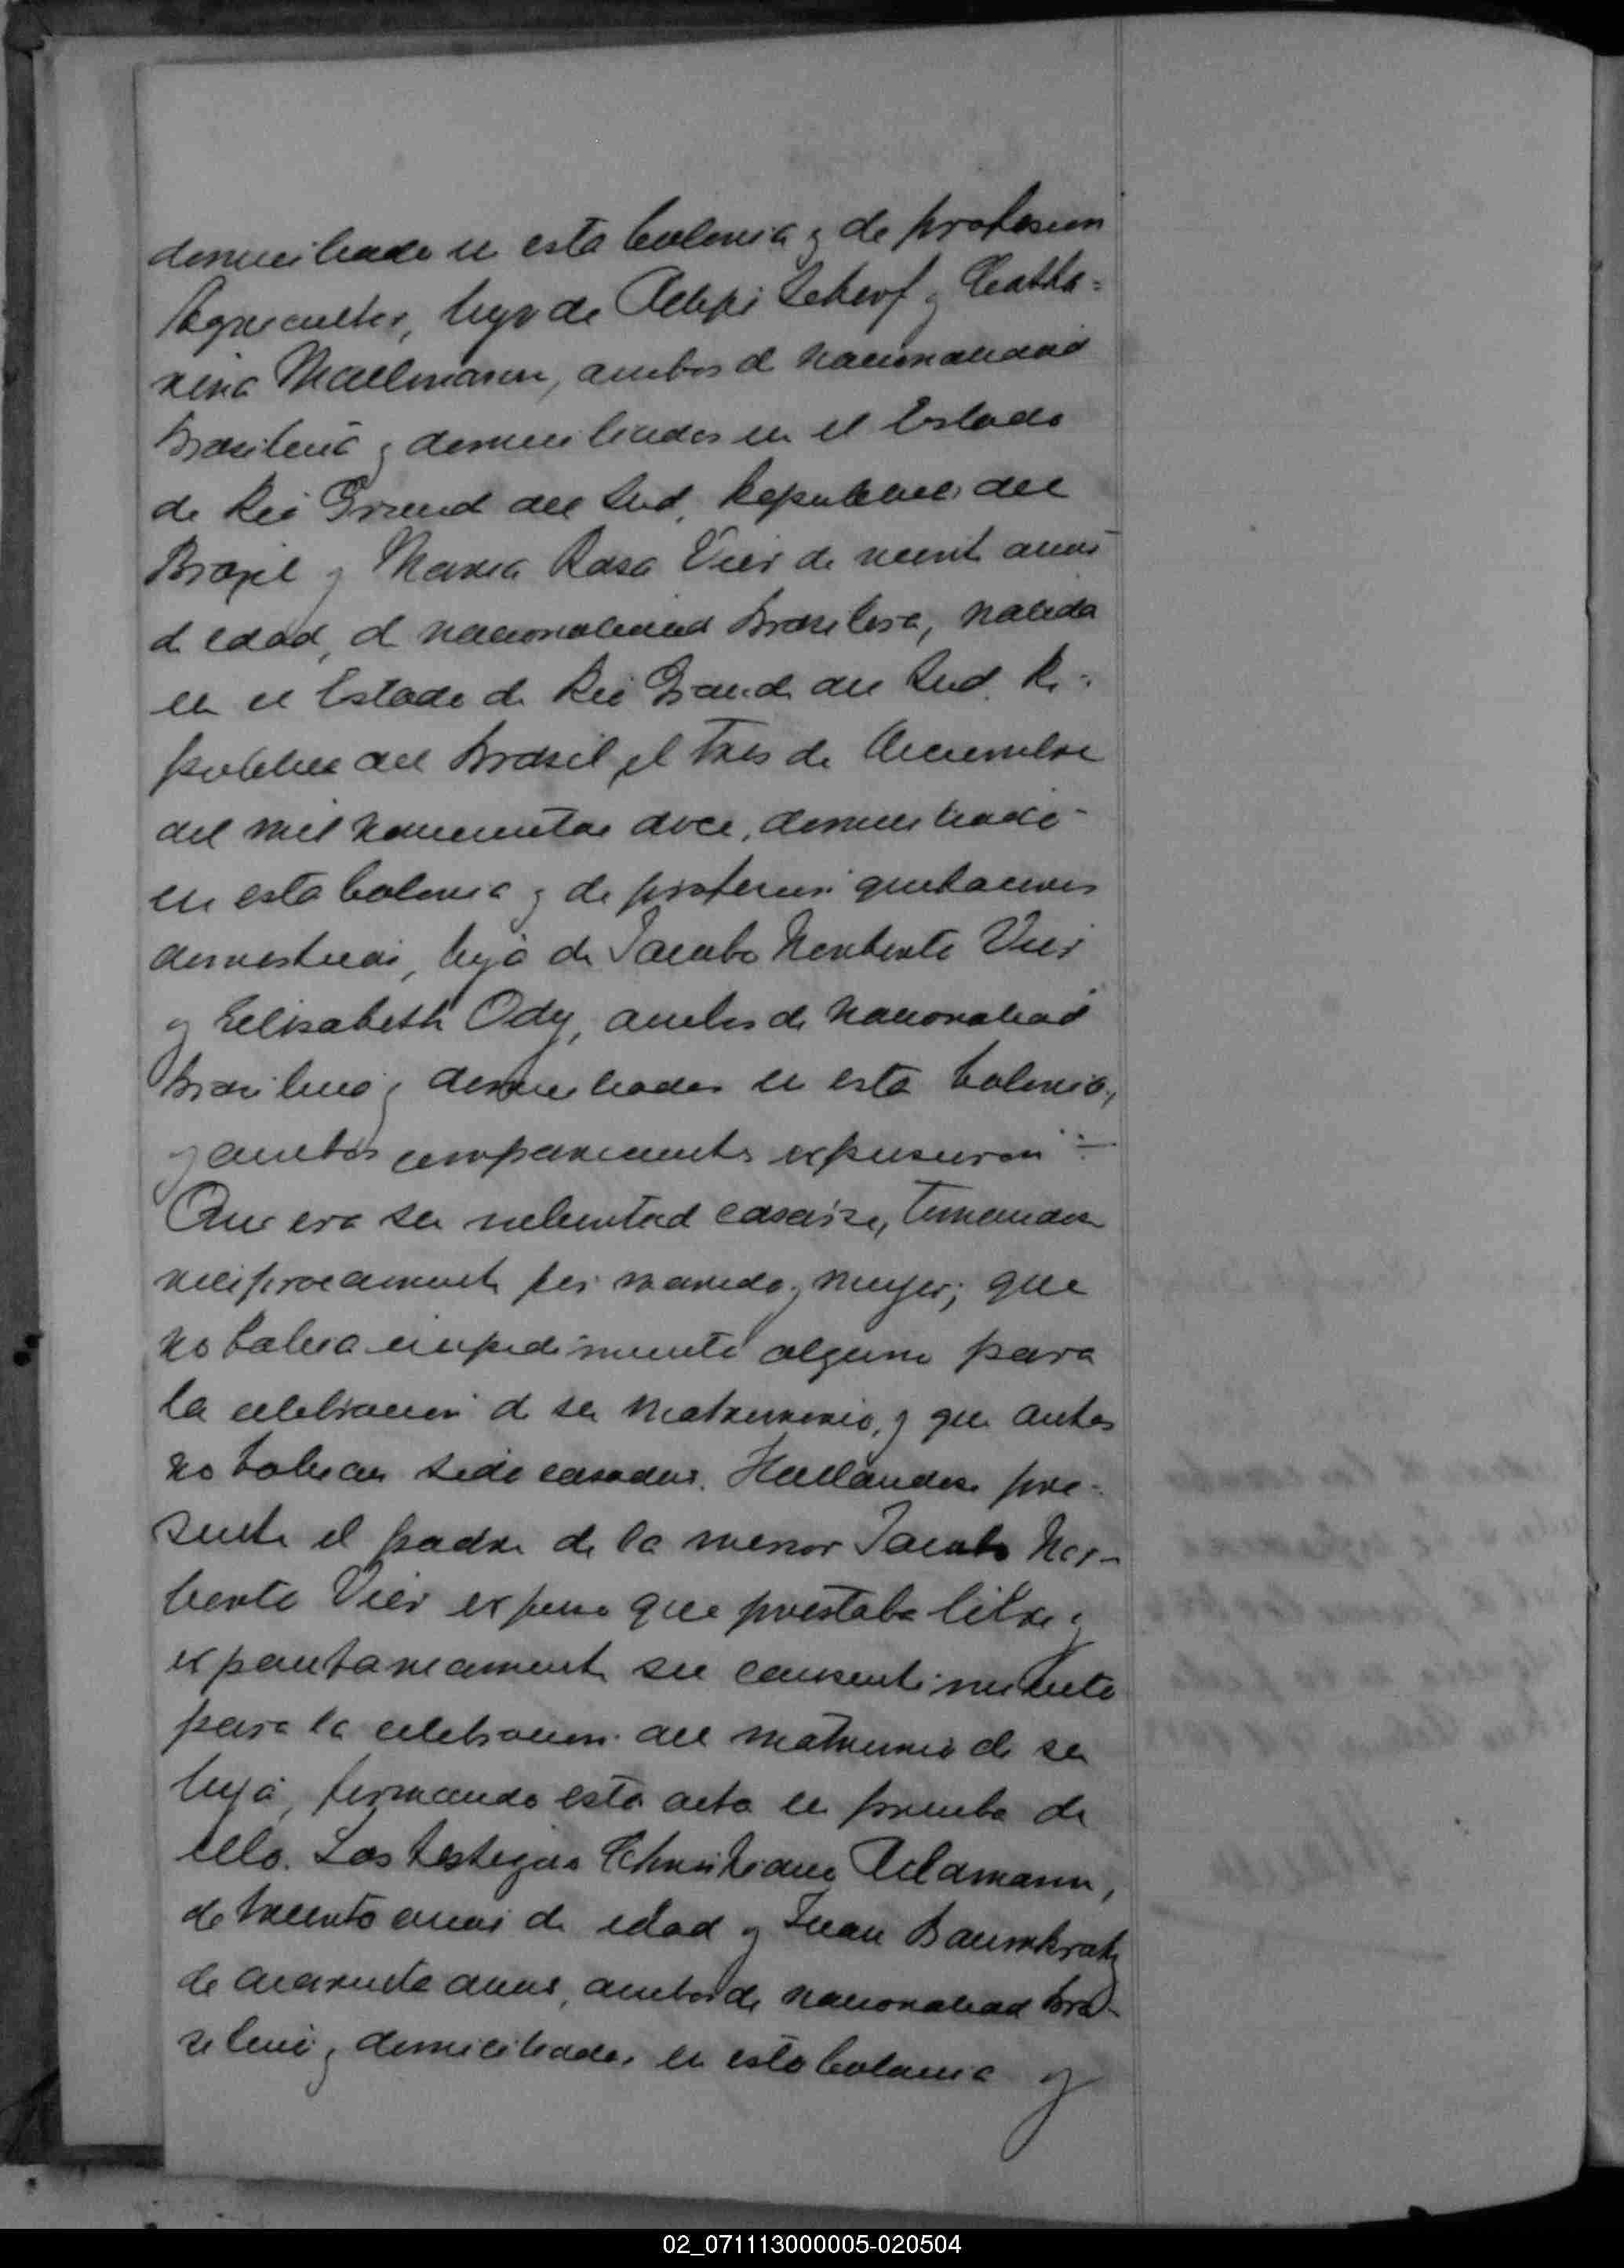 domiciliado en esta Colonia y de profesion
Agricultor, hijo de Scherf y Catha=
rina Mallmann, ambos de nacionalidad
Brasilena y domiciliados en el Estado
de Rio Grand del Sud, Republica del
Brazil y Maria Rosa Vier de veinte anos
de edad, de nacionalidad Brasilera, nacida
en el Estado de Rio Grande del Sud. Re=
publica del Brasil, el tres de
del mil novecientos doce, domiciliada
en esta Colonia y de profesion quehaceres
domesticos, hija de Jacobo Norberto Vier
y Elisabeth Ody, ambos de nacionalidad
brasilena y domiciliados en esta Colonia,
y ambos comparecientes expusieron :-
Que era su voluntad casarse, tomandose
reciprocamente por marido y mujer; que
no habia impedimento alguno para
la celebracion de su matrimonio, y que antes
no habian sido casados. Hallandose pre-
sente el padre de la menor Jacobo Nor-
berto Vier expuso que prestaba libre y
expontaneamente su consentimiento
para la celebracion del matrimonio de su
hija, firmando esta acta en prueba de
ello. Los testigos Christiano
de treinta anos de edad y Juan Baumkratz
de cuarenta anos, ambos de nacionalidad bra-
silena y domiciliados en esta Colonia y
02_071113000005-020504